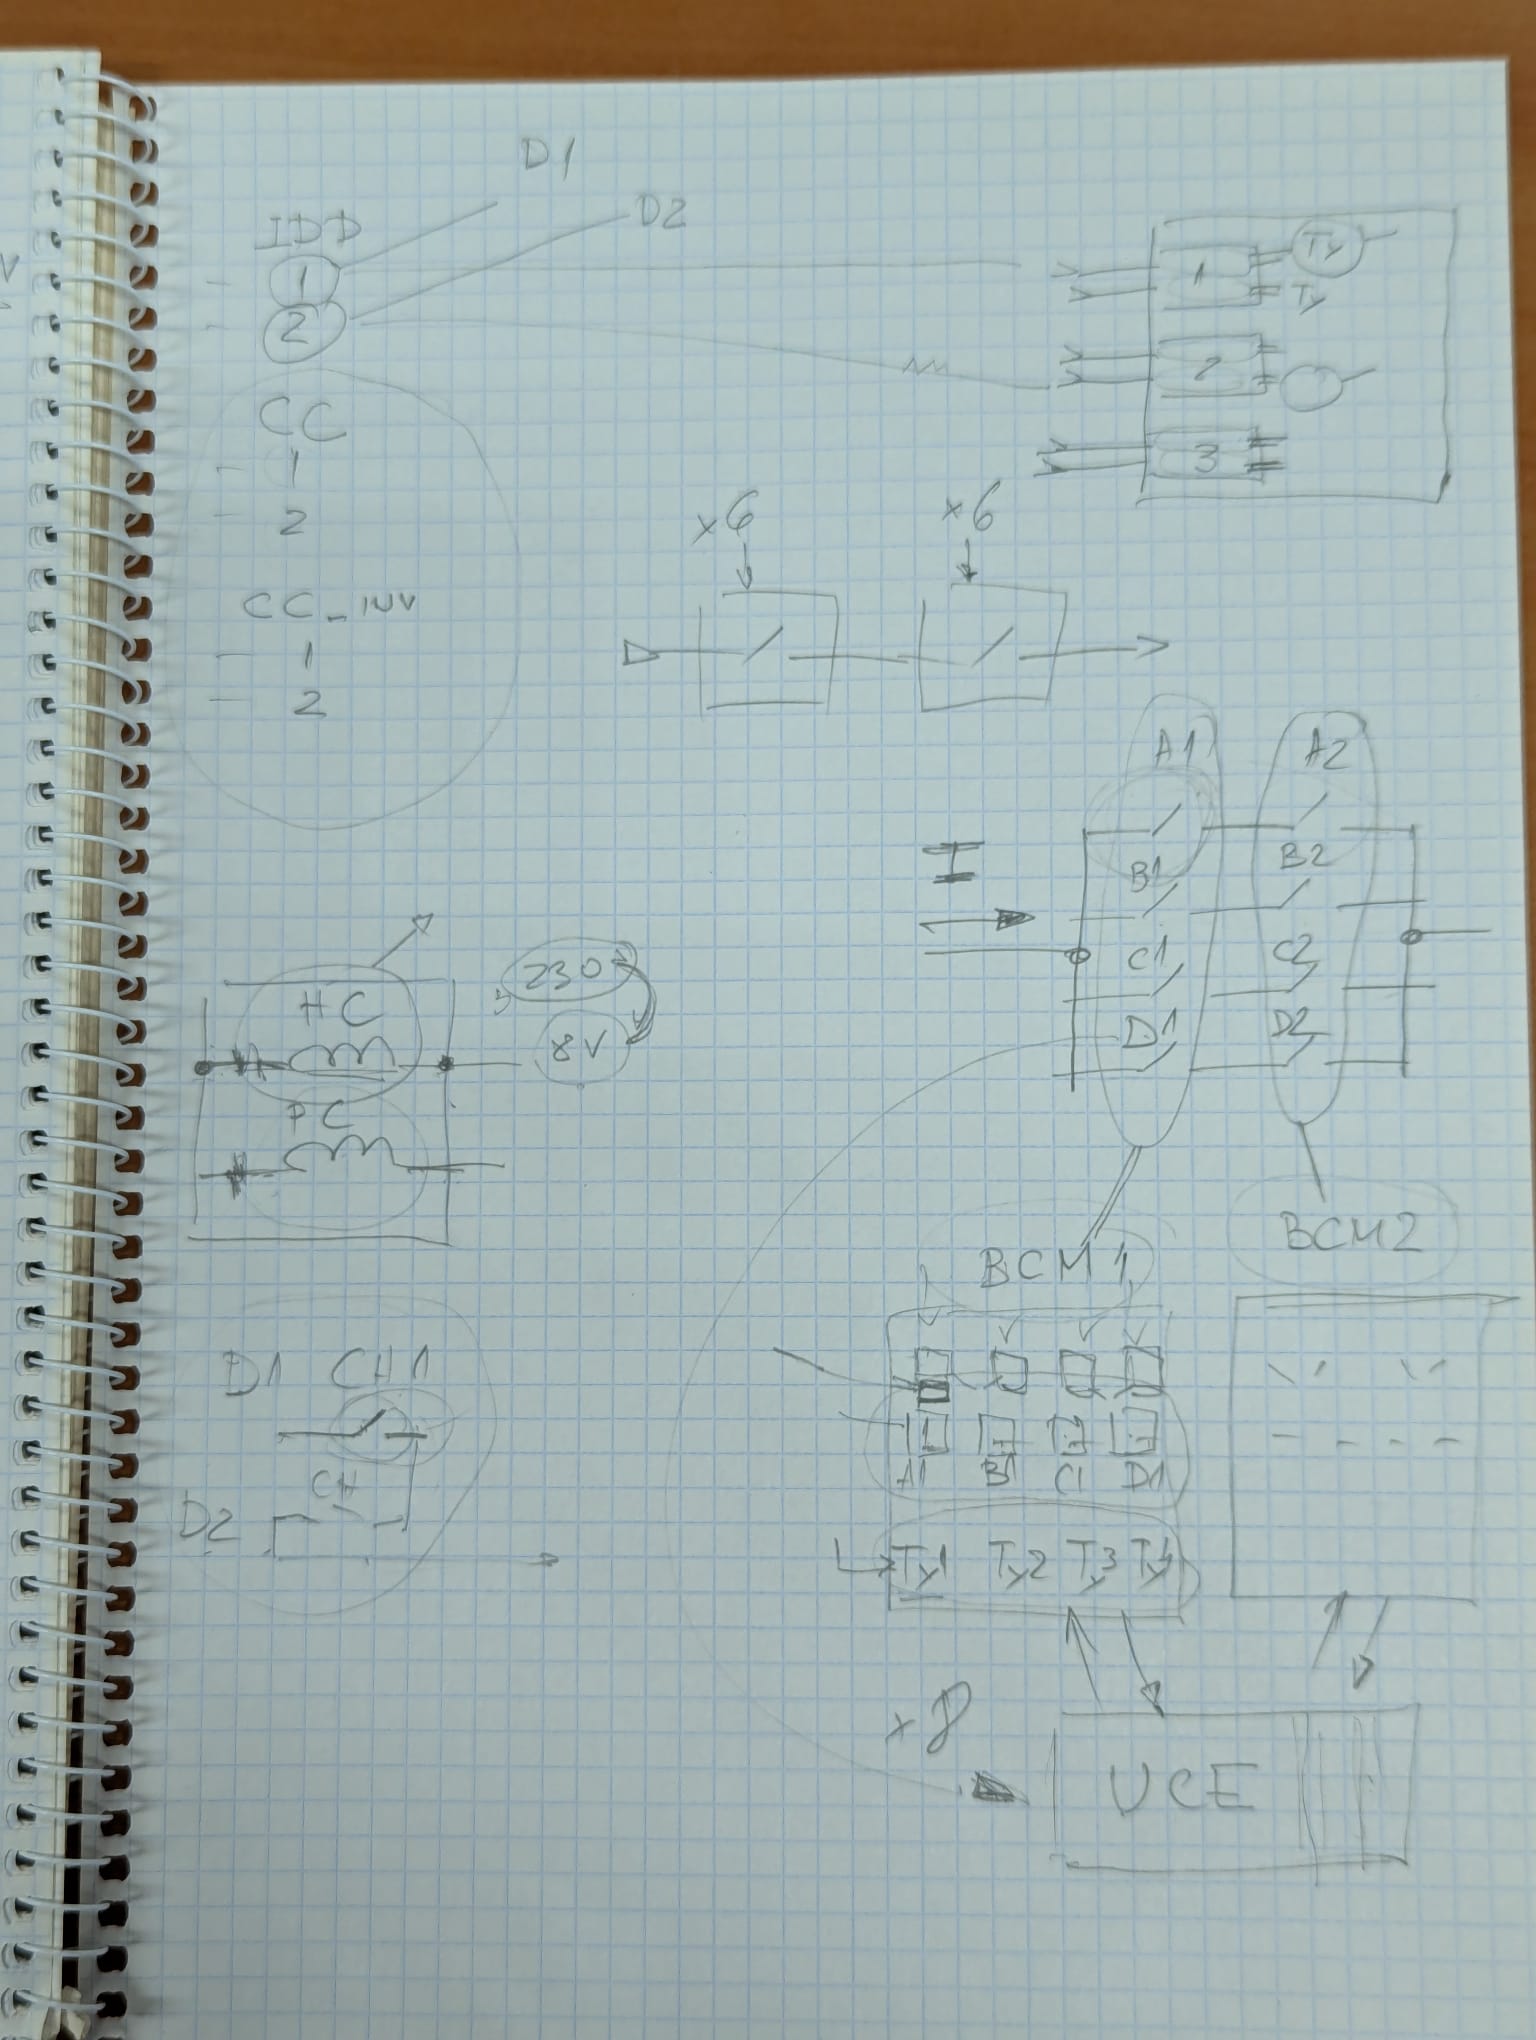 D1
IDD
D2
1
2
CC
1
2
CC_INV
1
2
1 Ty
Ty
2
3
x6 x6
A1 A2
I
B1 B2
C1 C2
D1 D2
HC
PC
230
8V
BCM1 BCM2
D1 CH1
CH
D2
A1 B1 C1 D1
Ty1 Ty2 Ty3 Ty4
x8
UCE